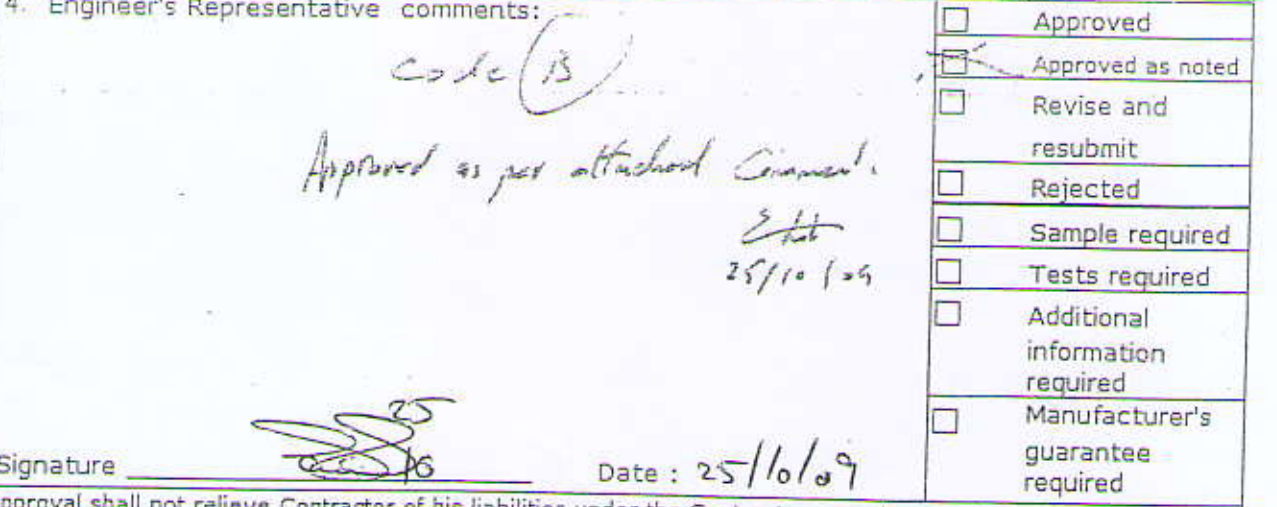 4. Engineer's Representative comments:
Code B
Approved as per attached Comment.
25/10/09
25
10
Signature
Date : 25/10/09
Approved
Approved as noted
Revise and
resubmit
Rejected
Sample required
Tests required
Additional
information
required
Manufacturer's
guarantee
required
pproval shall not relieve Contractor of his liabilities under the